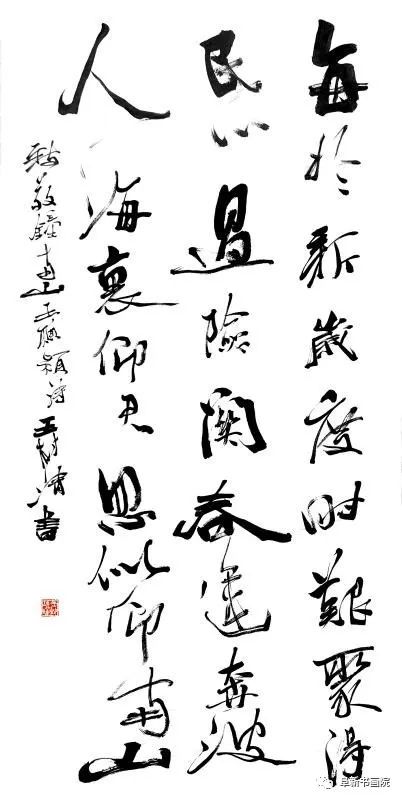 每於新歲度时艱聚得
民心過險關春運奔波
人海裏仰君思似仰南山
致敬鐘南山 詩 王 清書
阜新书画院